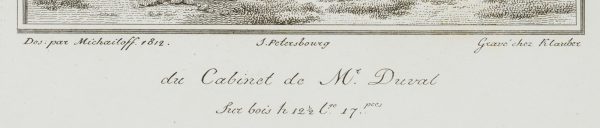 Des. par Michailoff. 1812. S. Petersbourg Gravé chez Klauber
du Cabinet de Mr. Duval
Sur bois h 12½ lre 17. pces